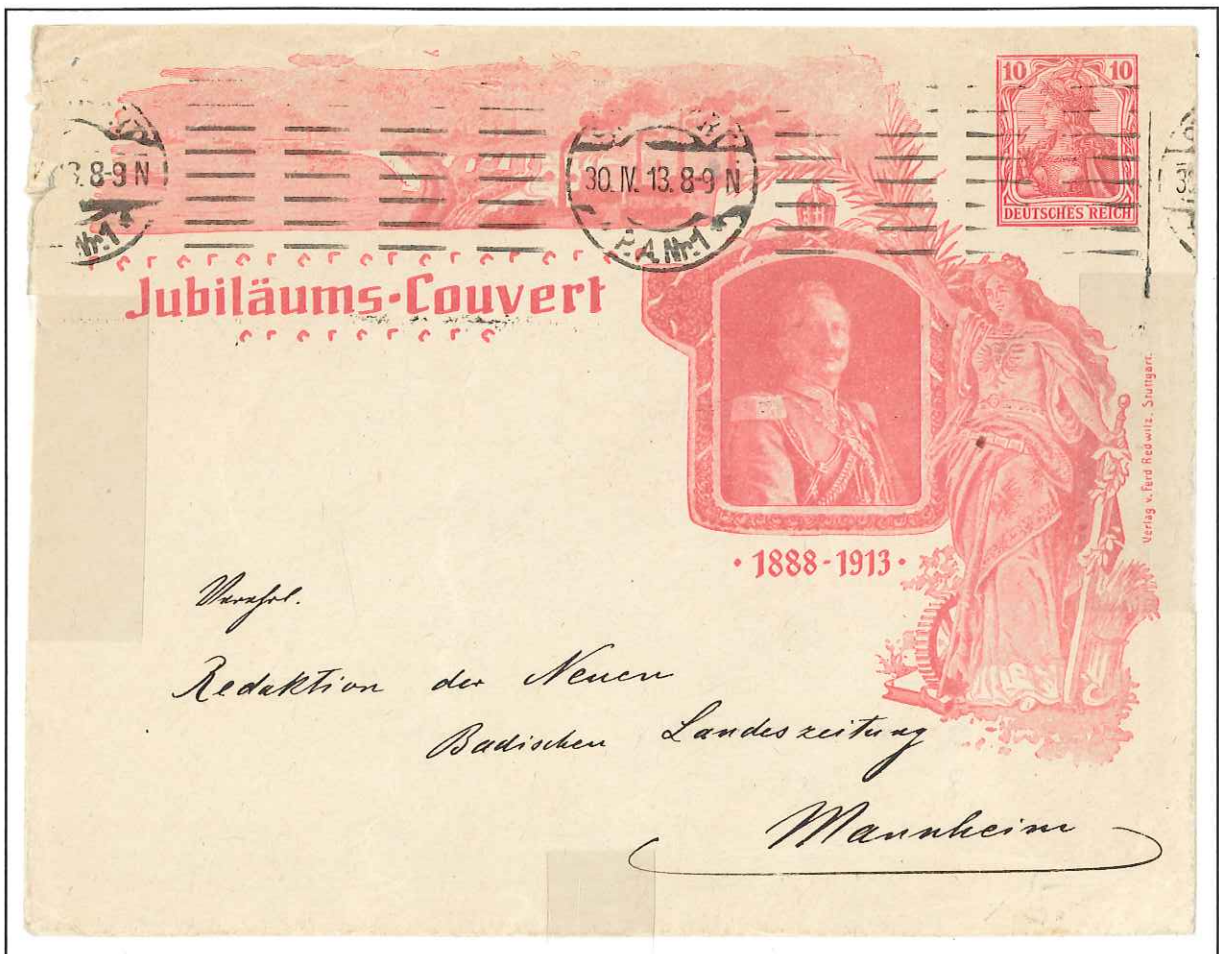 10 10
DEUTSCHES REICH
3. 8-9 N
Nr. 1
30. IV. 13. 8-9 N
P.A. Nr. 1
Jubiläums-Couvert
· 1888-1913 ·
Verlag v. Ferd Redwitz, Stuttgart.
Verehrl.
Redaktion der Neuen
Badischen Landeszeitung
Mannheim